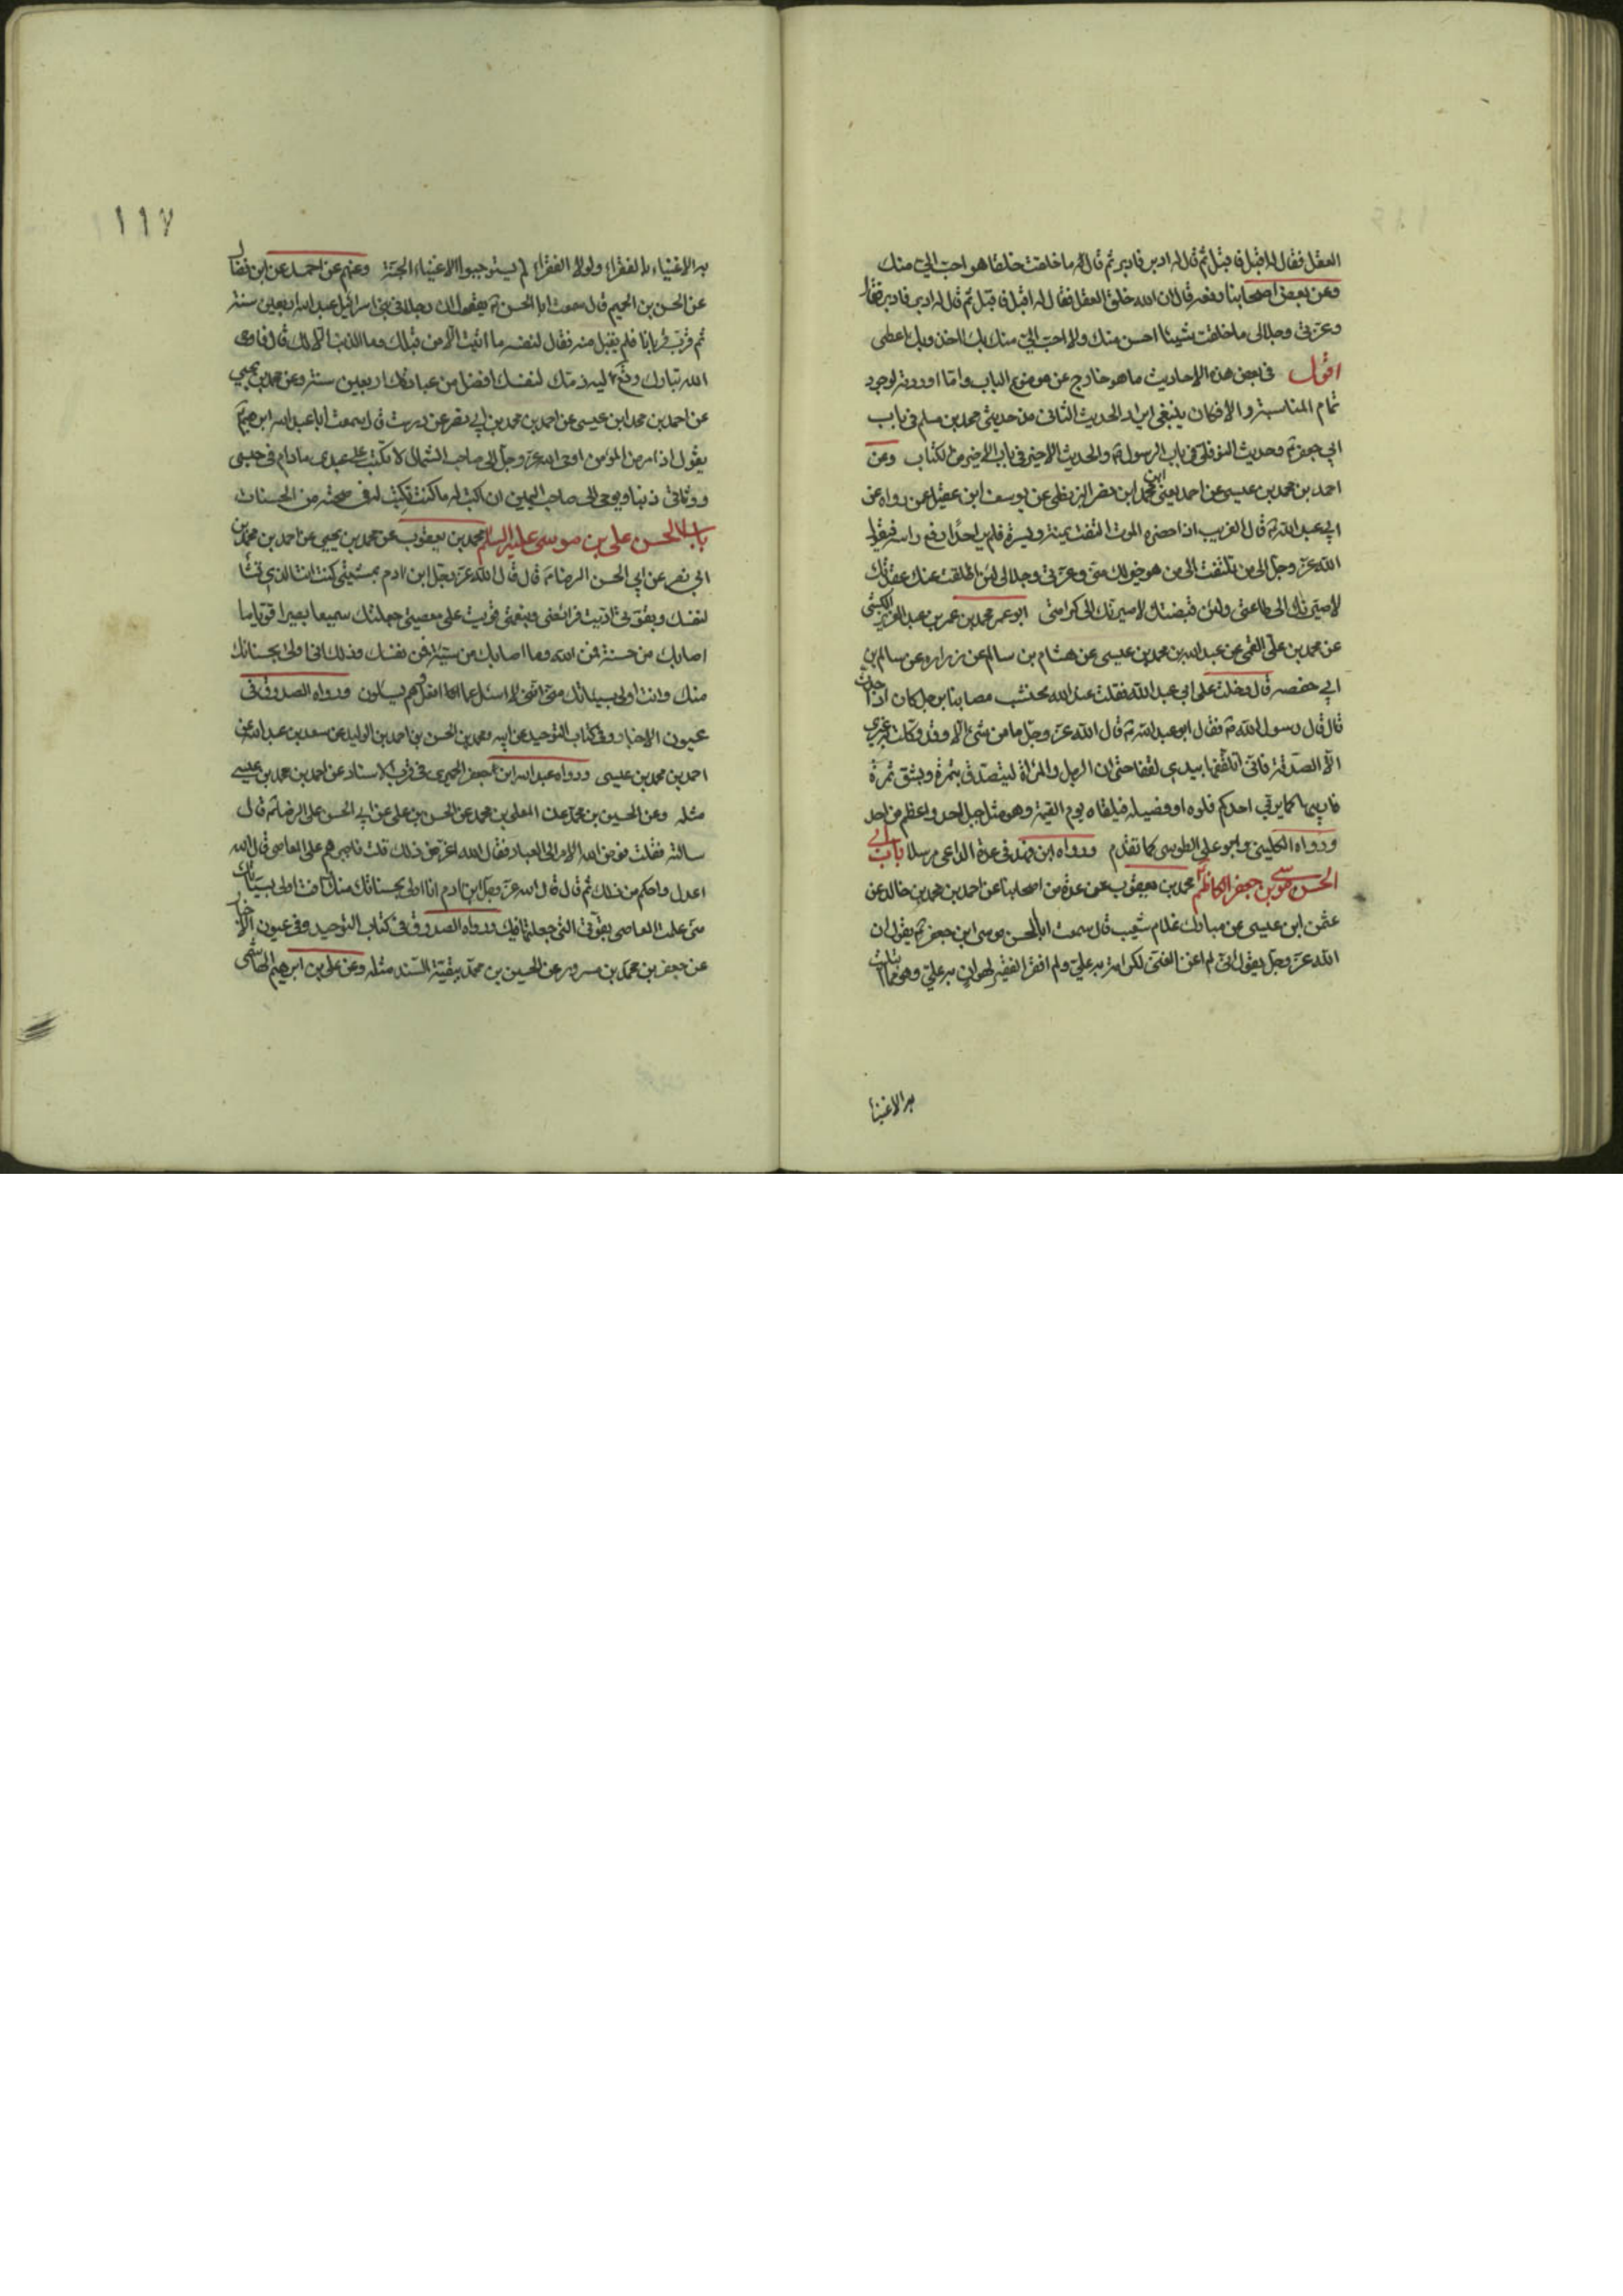 العقل فقال له اقبل فاقبل ثم قال له ادبر فادبر ثم قال له ما خلقت خلقا هو احب الي منك
وعن بعض اصحابنا رفعه قال ان الله خلق العقل فقال له اقبل فاقبل ثم قال له ادبر فادبر فقال
وعزتي وجلالي ما خلقت شيئا احسن منك ولا احب الي منك بك اخذ وبك اعطي
اقول في بعض هذه الاحاديث ما هو خارج عن موضوع الباب وانما اوردته لوجود
تمام المناسبة والا فكان ينبغي ايراد الحديث الثاني من حديثي محمد بن مسلم في باب
ابي جعفر ع وحديث النوفلي في باب الرسول ص والحديث الاخير في باب الاخير من الكتاب وعن
احمد بن محمد بن عيسى عن احمد يعني ابن محمد ابن نصر البزنطي عن يوسف ابن عقيل عمن رواه عن
ابي عبد الله ع قال الغريب اذا حضره الموت التفت يمنة ويسرة فلم ير احدا رفع راسه فيقول
الله عز وجل الى من تلتفت الى من هو خير لك مني وعزتي وجلالي لئن اطلقت عنك عقدتك
لاصيرنك الى طاعتي ولئن قبضتك لاصيرنك الى كرامتي ابو عمر محمد بن عمر بن عبد العزيز الكشي
عن محمد بن علي القمي عن عبد الله بن محمد بن عيسى عن هشام بن سالم عن زراره عن سالم بن
ابي حفصه قال دخلت على ابي عبد الله فقلت عند الله نحتسب مصابنا برجل كان اذا حدث
قال قال رسول الله ص فقال ابو عبد الله ع قال الله عز وجل ما من شئ الا وقد وكلت به غيري
الا الصدقة فاني اتلقفها بيدي لقفا حتى ان الرجل والمراة ليتصدق بتمرة وبشق تمرة
فاربيها كما يربي احدكم فلوه او فصيله فيلقاه يوم القيمة وهو مثل جبل احد واعظم من احد
ورواه الكليني وابو علي الطوسي كما تقدم ورواه ابن فهد في عدة الداعي مرسلا باب ابي
الحسن موسى بن جعفر الكاظم ع محمد بن يعقوب عن عدة من اصحابنا عن احمد بن محمد بن خالد عن
عثمن ابن عيسى عن مبارك غلام شعيب قال سمعت ابا الحسن موسى ابن جعفر ع يقول ان
الله عز وجل يقول اني لم اغن الغني لكرامة به علي ولم افقر الفقير لهوان به علي وهو مما ابتليت
به الاغنيا
١١٧
به الاغنياء بالفقراء ولولا الفقراء لم يستوجبوا الاغنياء الجنة وعنهم عن احمد عن ابن فضال
عن الحسن بن الجهم قال سمعت ابا الحسن ع يقول ان رجلا في بني اسرائيل عبد الله اربعين سنة
ثم قرب قربانا فلم يقبل منه فقال لنفسه ما اتيت الا من قبلك وما الذنب الا لك قال فاوحى
الله تبارك وتع اليه ذمتك لنفسك افضل من عبادتك اربعين سنة وعن محمد بن يحيى
عن احمد بن محمد ابن عيسى عن احمد بن محمد بن ابي نصر عن درست قال سمعت ابا عبد الله ابرهيم
يقول اذا مرض المؤمن اوحى الله عز وجل الى صاحب الشمال لا تكتب على عبدي ما دام في حبسي
ووثاقي ذنبا ويوحي الى صاحب اليمين ان اكتب له ما كنت تكتب له في صحته من الحسنات
باب الحسن علي بن موسى عليه السلم محمد بن يعقوب عن محمد بن يحيى عن احمد بن محمد بن
ابي نصر عن ابي الحسن الرضا ع قال قال الله عز وجل ابن ادم بمشيتي كنت انت الذي تشا
لنفسك وبقوتي اديت فرائضي وبنعمتي قويت على معصيتي جعلتك سميعا بصيرا قويا ما
اصابك من حسنة فمن الله وما اصابك من سيئة فمن نفسك وذلك اني اولى بحسناتك
منك وانت اولى بسيئاتك مني انني لا اسئل عما افعل وهم يسئلون ورواه الصدوق في
عيون الاخبار وفي كتاب التوحيد عن ابيه ومحمد بن الحسن بن احمد بن الوليد عن سعد بن عبد الله عن
احمد بن محمد بن عيسى ورواه عبد الله ابن جعفر الحميري في قرب الاسناد عن احمد بن محمد بن عيسى
مثله وعن الحسين بن محمد عن المعلى بن محمد عن الحسن بن علي عن ابي الحسن علي الرضا ع قال
سالته فقلت فوض الله الامر الى العباد فقال الله اعز من ذلك قلت فاجبرهم على المعاصي قال الله
اعدل واحكم من ذلك ثم قال قال الله عز وجل ابن ادم انا اولى بحسناتك منك وانت اولى بسيئاتك
مني عملت المعاصي بقوتي التي جعلتها فيك ورواه الصدوق في كتاب التوحيد وفي عيون الاخبار
عن جعفر بن محمد بن مسرور عن الحسين بن محمد ببقية السند مثله وعن علي بن ابرهيم الهاشمي